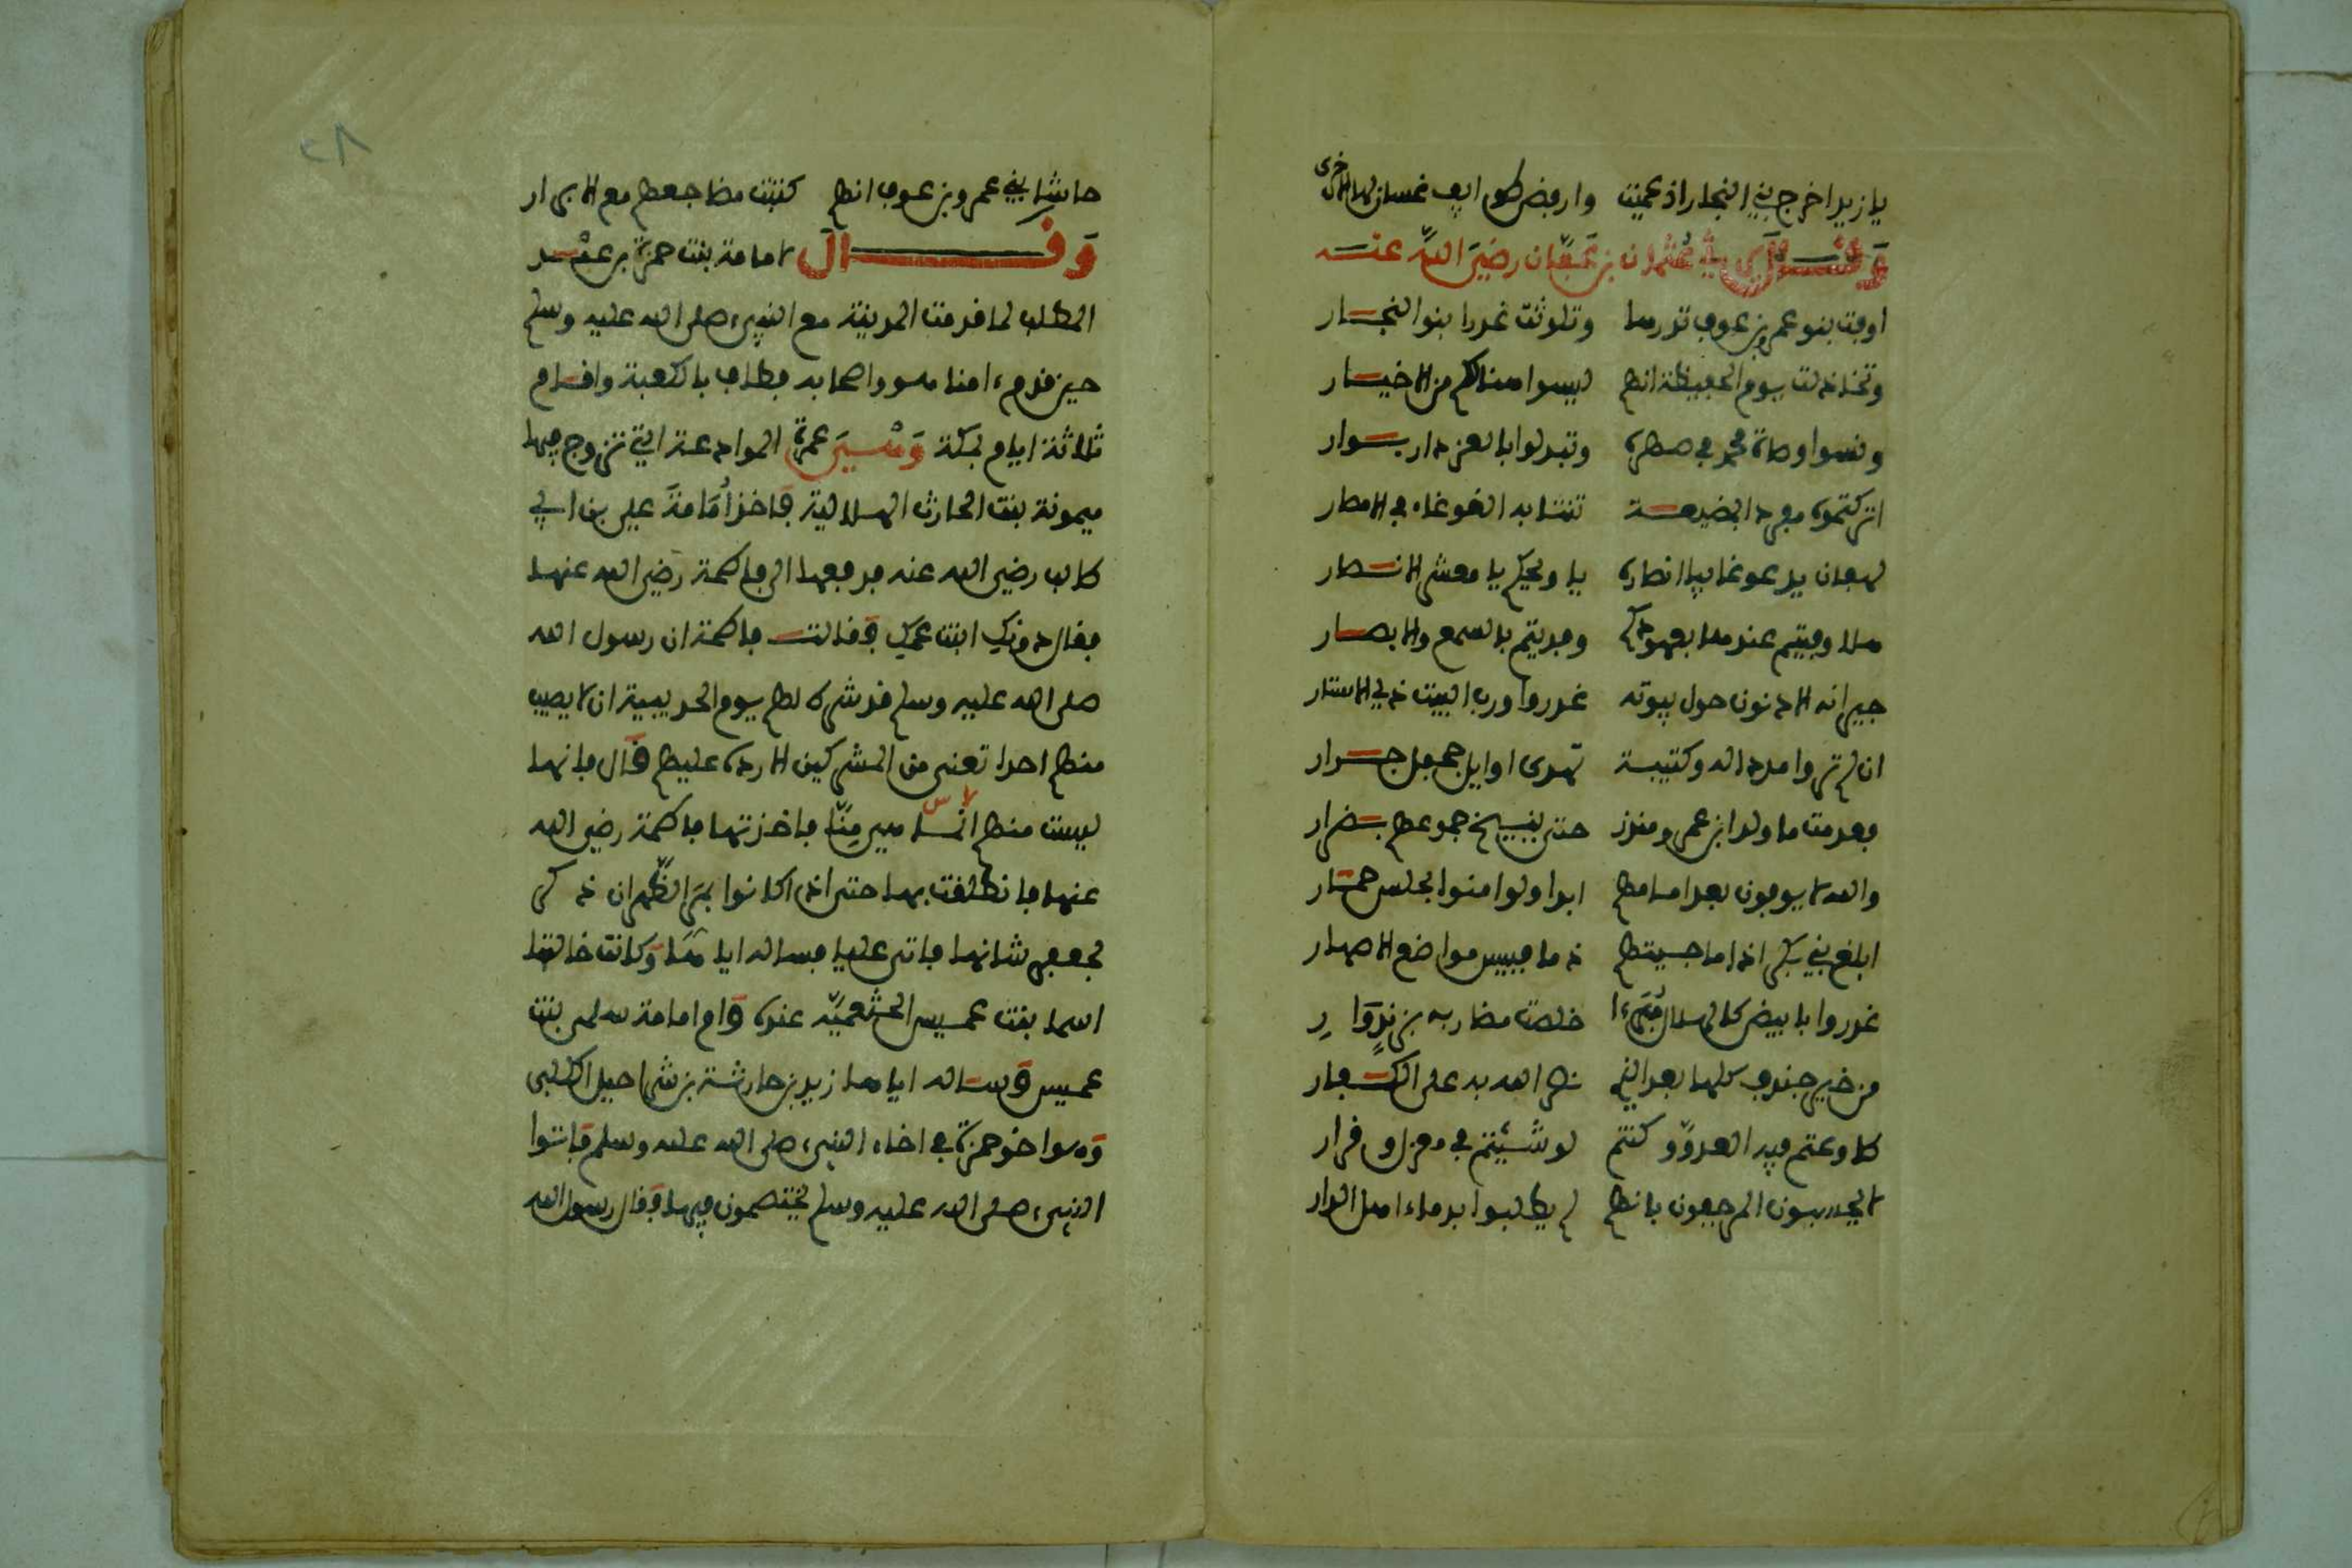 يا زيد اخرج بني النجار اذ عميت وارفض طوايف غسان لها الاخرى
وقال يرثي عثمان بن عفان رضي الله عنه
اوفت بنو عمرو بن عوف نذرها وتلوثت غدرا بنو النجار
وتخاذلت يوم الحفيظة انهم ليسوا هنالكم من الاخيار
ونسوا وصاة محمد في صهره وتبدلوا بالعز دار بوار
اتركتموه مفردا بمضيعة تنتابه الغوغاء في الامصار
لهفان يدعو غايبا انصاره يا ويحكم يا معشر الانصار
هلا وفيتم عندها بعهودكم وفديتم بالسمع والابصار
جيرانه الادنون حول بيوته غدروا ورب البيت ذي الاستار
ان لم تروا مددا له وكتيبة تهدى اوايل جحفل جرار
فعدمت ما ولد ابن عمرو منذر حتى ينيخ جموعهم بضرار
والله لا يوفون بعد امامهم ابدا ولو امنوا بحلس حمار
ابلغ بني بكر اذا ما جيتهم ذما فبيس مواضع الاصهار
غدروا بابيض كالهلال مبرءا خلصت مضاربه بزند وار
من خير خندف كلها بعد الذي نصر الاله به على الكفار
طاوعتم فيه العدو وكنتم لو شيتم في معزل وقرار
لا يحسبون المرجفون بانهم لم يطلبوا بدماء اهل الدار
حاشا بني عمرو بن عوف انهم كتبت مضاجعهم مع الابرار
وقال لامامة بنت حمزة بن عبد
المطلب لما قدمت المدينة مع النبيء صلى الله عليه وسلم
حين قدم ءامنا هو واصحابه فطاف بالكعبة واقام
ثلاثة ايام بمكة وهي عمرة الموادعة التي تزوج فيها
ميمونة بنت الحارث الهلالية فاخذ امامة علي بن ابي
طالب رضي الله عنه فدفعها الى فاطمة رضي الله عنها
فقال دونك ابنت عمك فقالت فاطمة ان رسول الله
صلى الله عليه وسلم قد شرط لهم يوم الحديبية ان لا يصيب
منهم احدا تعني من المشركين الا رده عليهم قال فانها
ليست منهم انما هي منا فاخذتها فاطمة رضي الله
عنها فانطلقت بها حتى اذا كانوا بمر الظهران ذكر
لجعفر شانها فاتى عليا فساله اياها وكانت خالتها
اسما بنت عميس الخثعمية عنده وام امامة سلمى بنت
عميس وساله اياها زيد بن حارثة بن شراحيل الكلبي
وهو اخو حمزة في اخاء النبيء صلى الله عليه وسلم فاتوا
النبيء صلى الله عليه وسلم يختصمون فيها فقال رسول الله